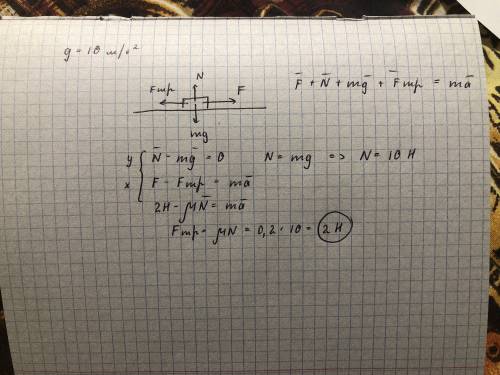 g = 10 м/с²
N
Fтр F
mg
F̅ + N̅ + mg̅ + F̅тр = ma̅
y N̅ - mg̅ = 0 N = mg => N = 10 H
x F - Fтр = ma̅
2H - μN̅ = ma̅
Fтр = μN = 0,2 · 10 = 2 H